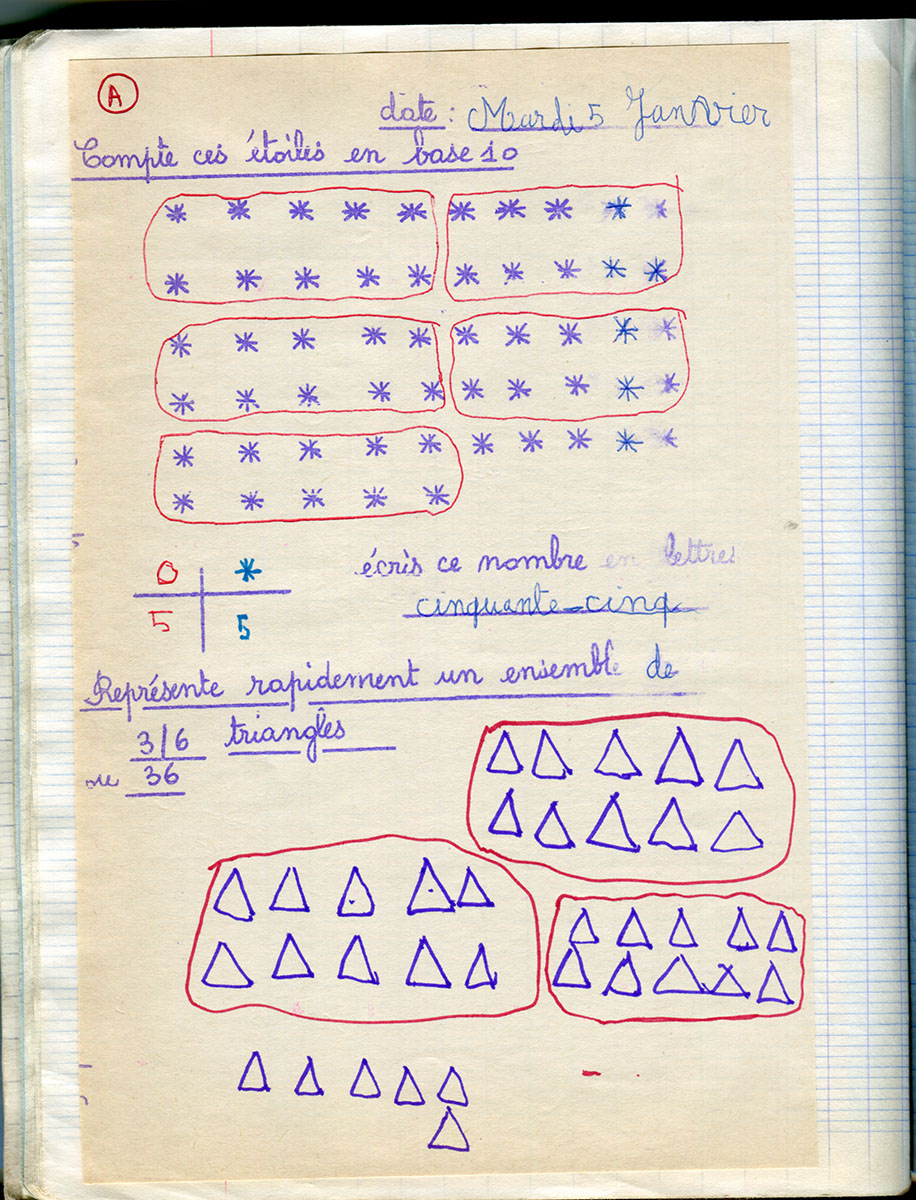 A
date : Mardi 5 Janvier
Compte ces étoiles en base 10
O *
5 5
écris ce nombre en lettres
cinquante-cinq
Représente rapidement un ensemble de
3/6 triangles
ou 36